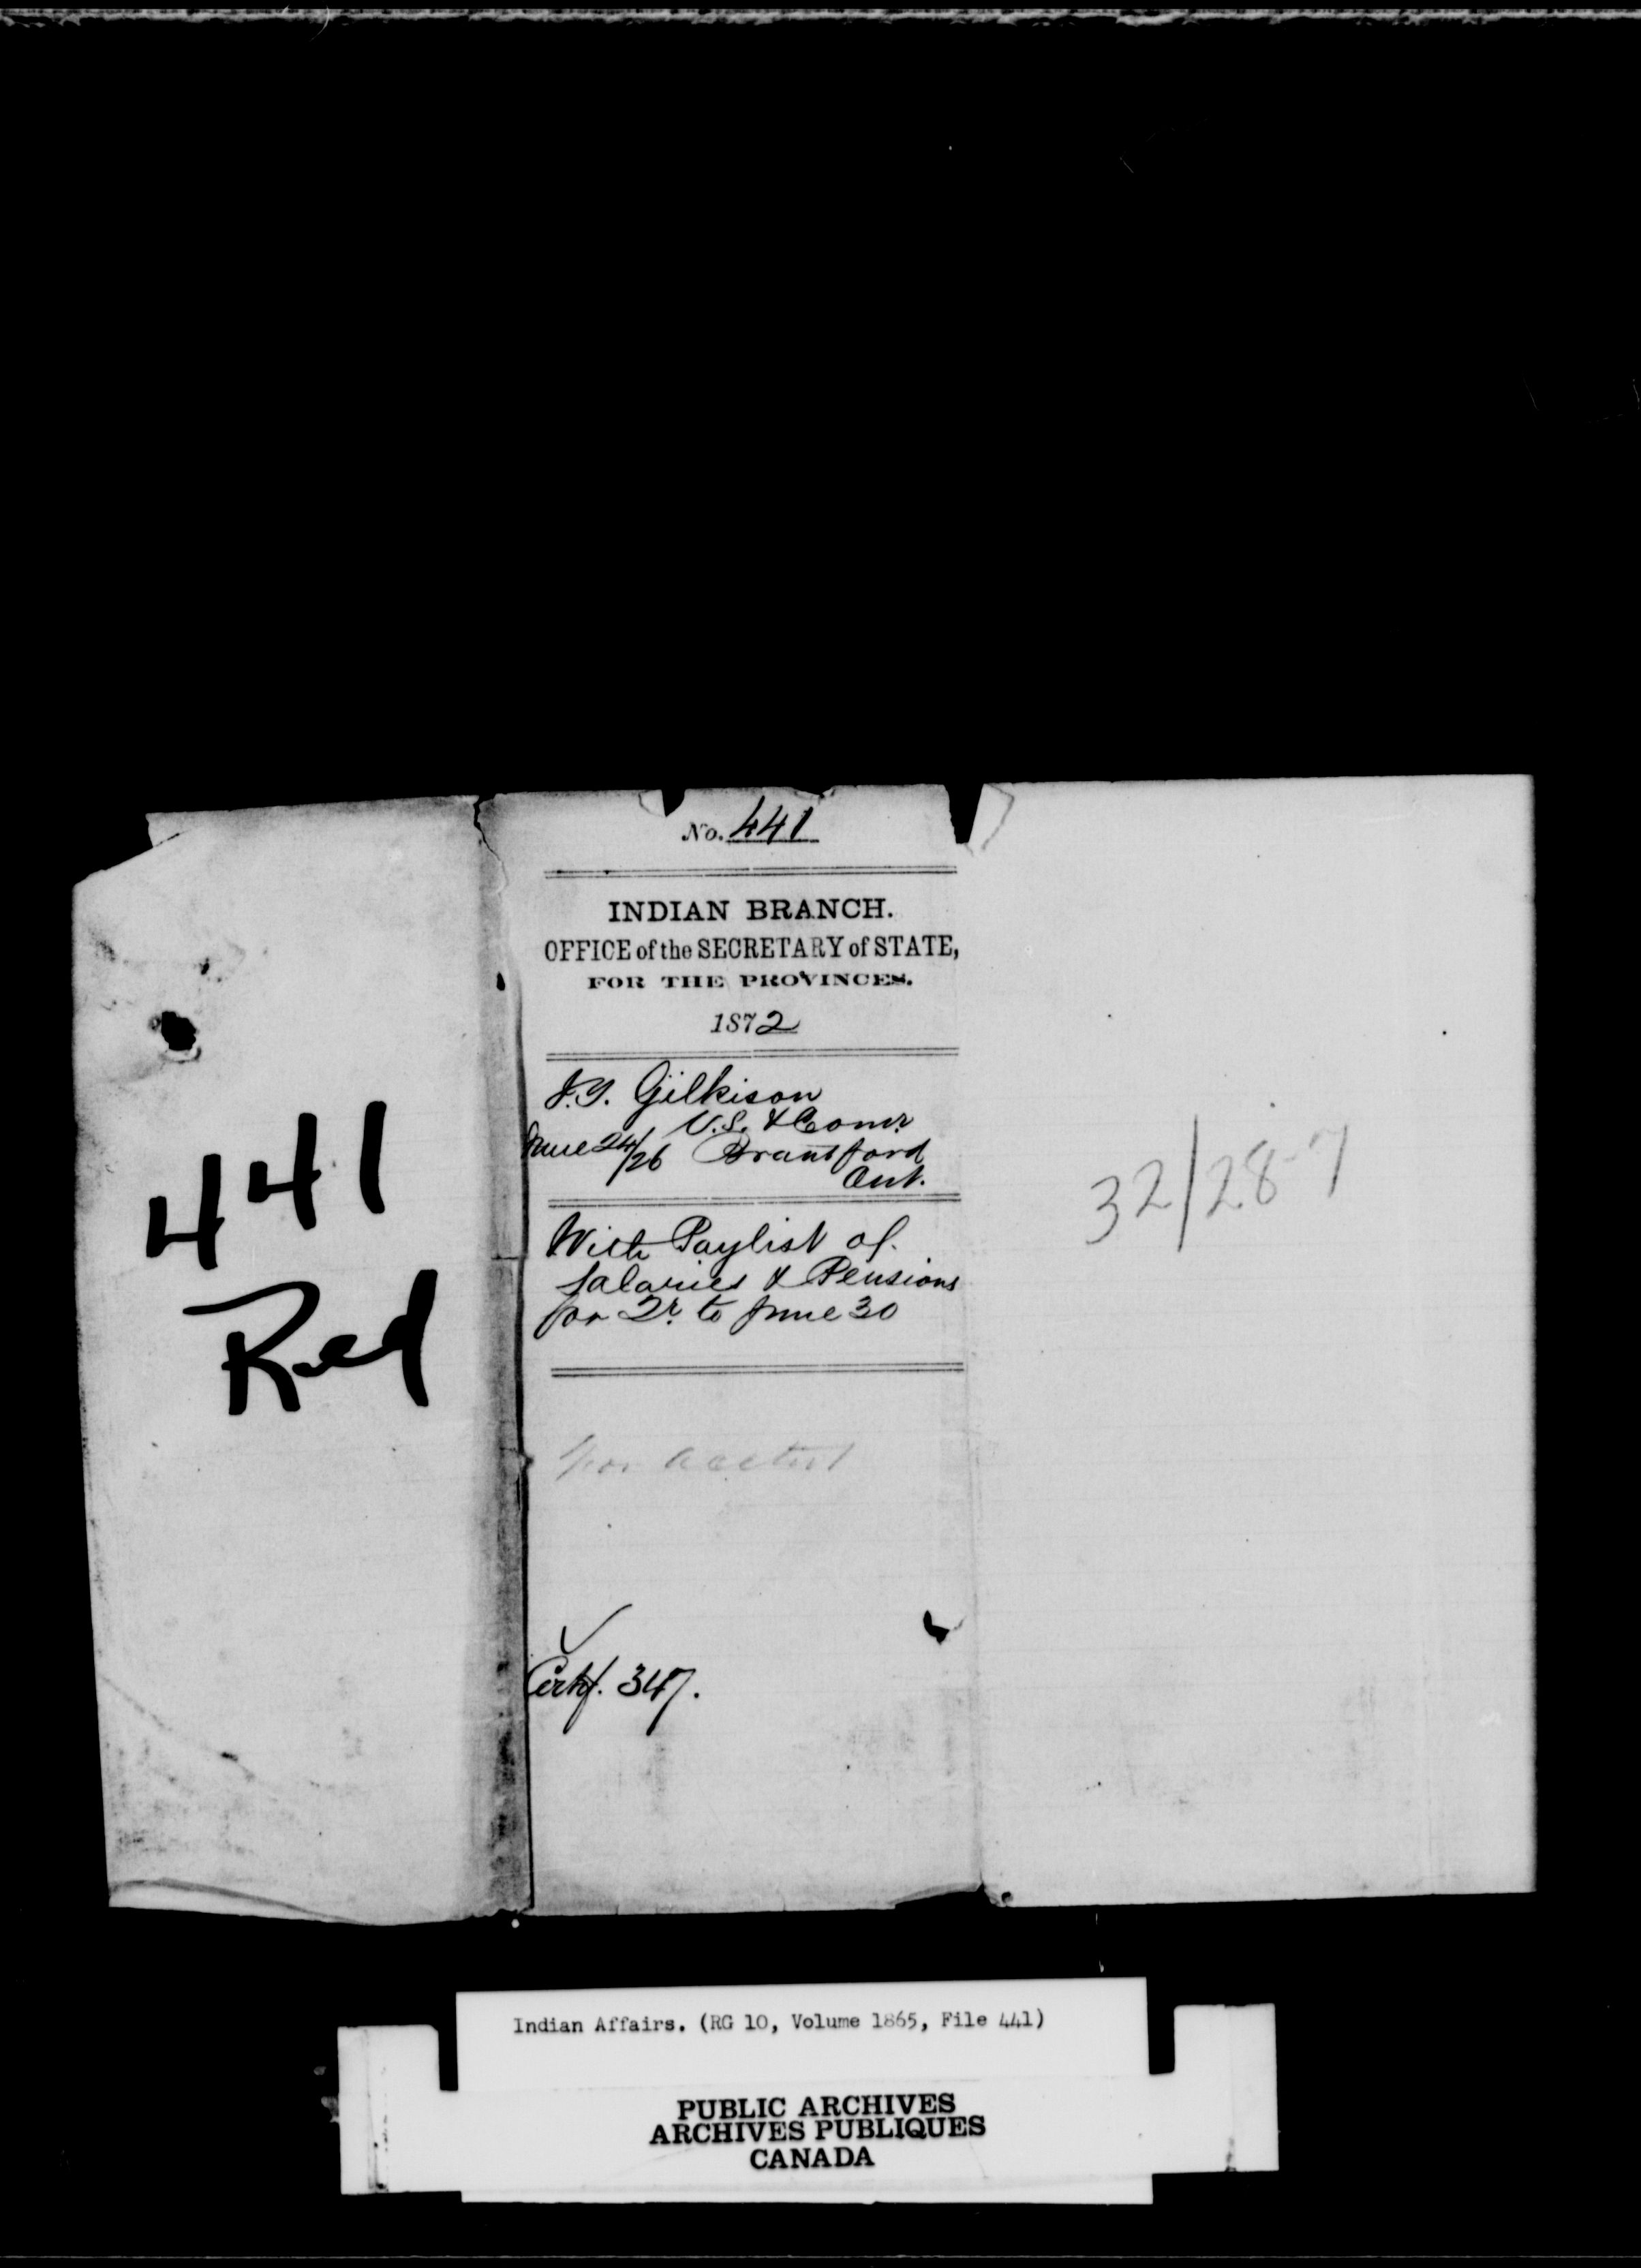 441
Red
No. 441
INDIAN BRANCH.
OFFICE of the SECRETARY of STATE,
FOR THE PROVINCES.
1872
J.T. Gilkison
V.S. & Comr.
June 24/26 Brantford
Ont.
With Paylist of
Salaries & Pensions
for Qr. to June 30
for
Certif. 347.
32/287
Indian Affairs. (RG 10, Volume 1865, File 441)
PUBLIC ARCHIVES
ARCHIVES PUBLIQUES
CANADA